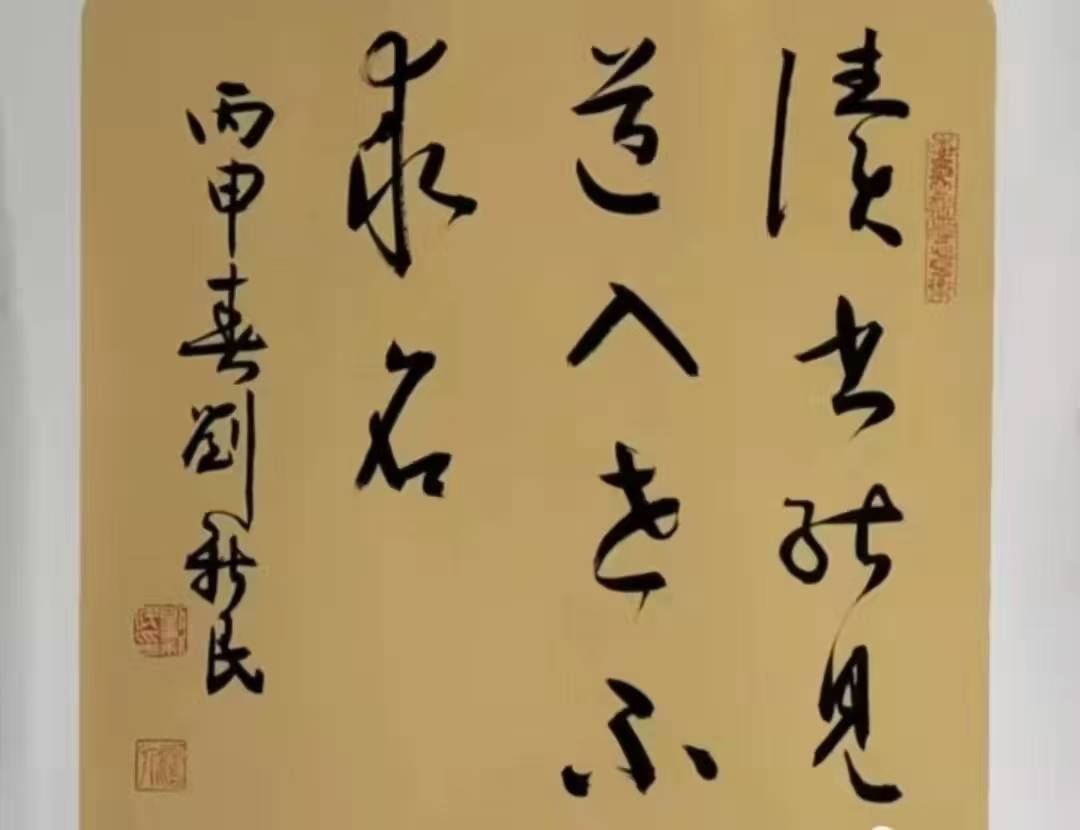 讀书能見
道入世不
求名
丙申春劉新民